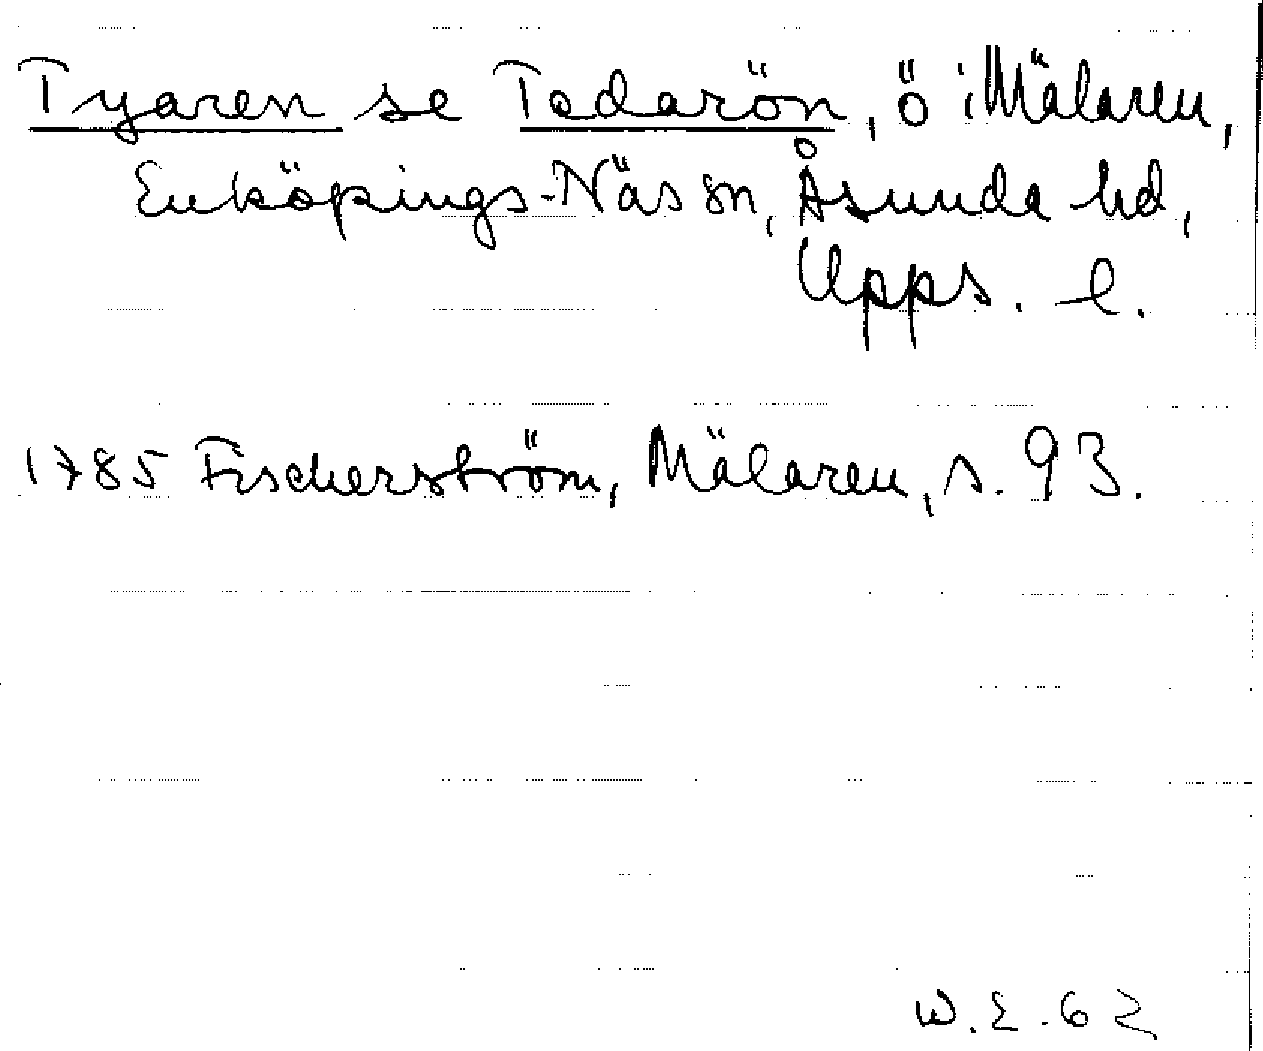 Tyaren se Tedarön, ö i Mälaren,
Enköpings-Näs sn, Åsunda hd,
Upps. l.
1785 Fischerström, Mälaren, s. 93.
W.E.62